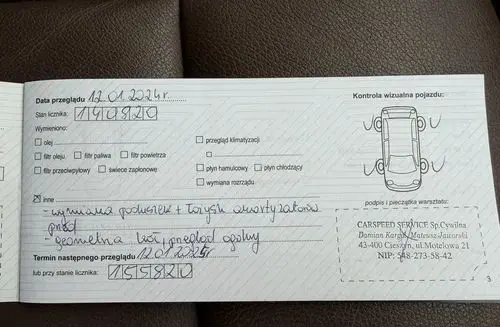 Data przeglądu 12.01.2024r.
Kontrola wizualna pojazdu:
Stan licznika: 140820
Wymieniono:
olej
przegląd klimatyzacji
filtr oleju filtr paliwa filtr powietrza
filtr przeciwpyłowy świece zapłonowe
płyn hamulcowy płyn chłodzący
wymiana rozrządu
inne
- wymiana poduszek + łożysk amortyzatorów
przód
- geometria kół, przegląd ogólny
podpis i pieczątka warsztatu:
CARSPEED SERVICE Sp.Cywilna
Damian Mateusz Jaworski
43-400 Cieszyn, ul.Motelowa 21
NIP: 548-273-58-42
Termin następnego przeglądu 12.01.2025r
lub przy stanie licznika: 155820
3